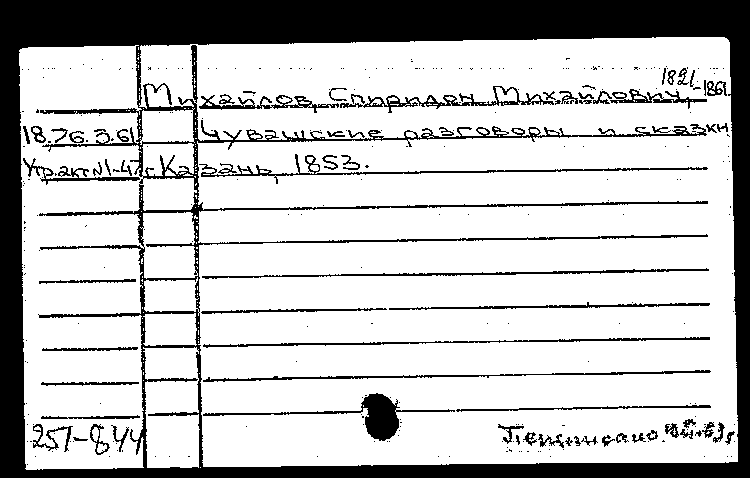 1821-1861
Михайлов, Спиридон Михайлович,
18.76.3.61 Чувашские разговоры и сказки
Утр.акт N1-47г. Казань, 1853.
257-844